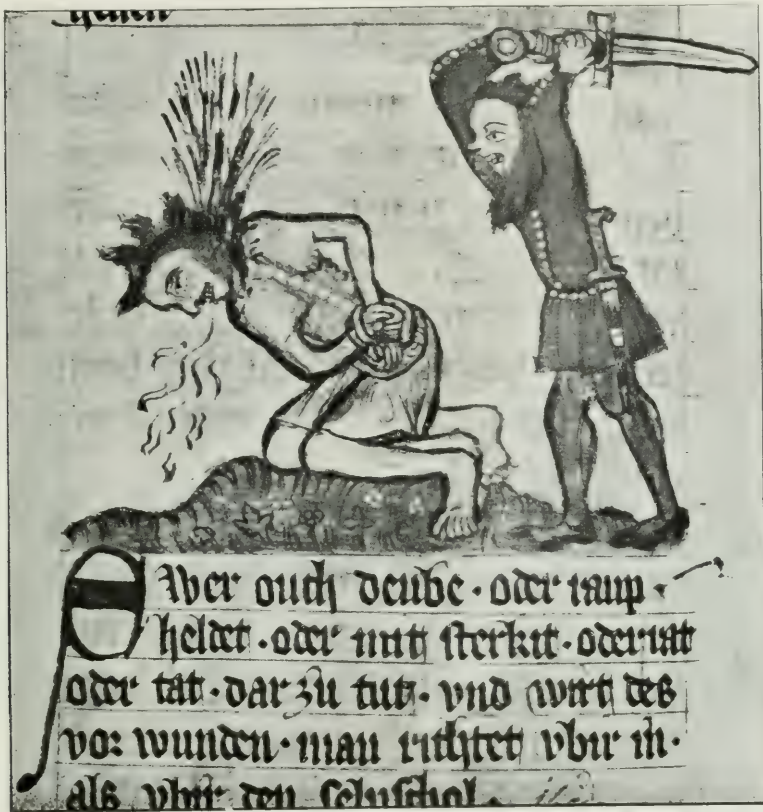 Swer ouch deube · oder raup ·
heldet · oder mitt sterkit · oder rat
oder tat · dar zu tut · vnd wirt des
vor wunden · man richtet vbir in ·
als vbir den selbschol ·